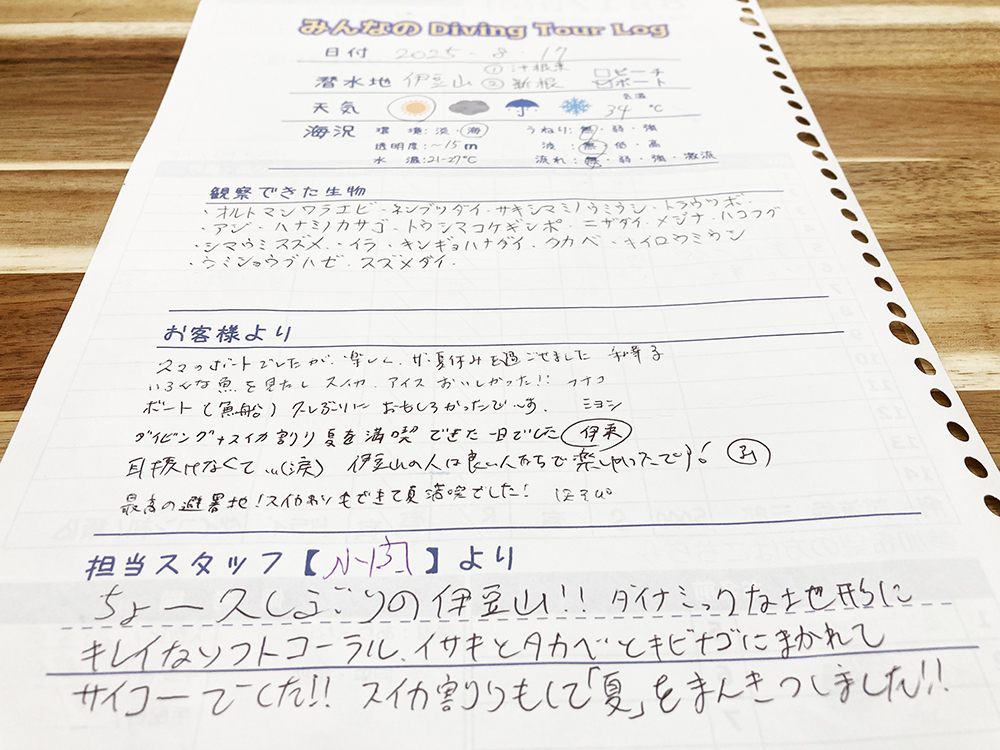 みんなの Diving Tour Log
日付 2025・8・17
潜水地 伊豆山 ① 汁根東 ② 新根 □ビーチ ☑ボート
天気 気温 34 ℃
海況 環境:淡・海 うねり:無・弱・強
透明度:~15m 波:無・低・高
水温:21-27℃ 流れ:無・弱・強・激流
観察できた生物
・オルトマンワラエビ・ネンブツダイ・サキシマミノウミウシ・トラウツボ
・アジ・ハナミノカサゴ・トウシマコケギンポ・ニザダイ・メジナ・ハコフグ
・シマウミスズメ・イラ・キンギョハナダイ・タカベ・キイロウミウシ
・ウミショウブハゼ・スズメダイ・
お客様より
ボートでしたが、楽しく、ザ・夏休みを過ごせました
いろんな魚を見たし スイカ、アイスおいしかった!!
ボート(魚船)久しぶりにおもしろかったです。 ミヨシ
ダイビング+スイカ割り夏を満喫できた一日でした 伊東
耳抜けなくて…(涙) 伊豆山の人は良い人たちで楽しかったです!
最高の避暑地!スイカわりもできて夏満喫でした!
担当スタッフ【】より
ちょー久しぶりの伊豆山!! ダイナミックな地形に
キレイなソフトコーラル、イサキとタカベとキビナゴにまかれて
サイコーでした!! スイカ割りもして「夏」をまんきつしました!!